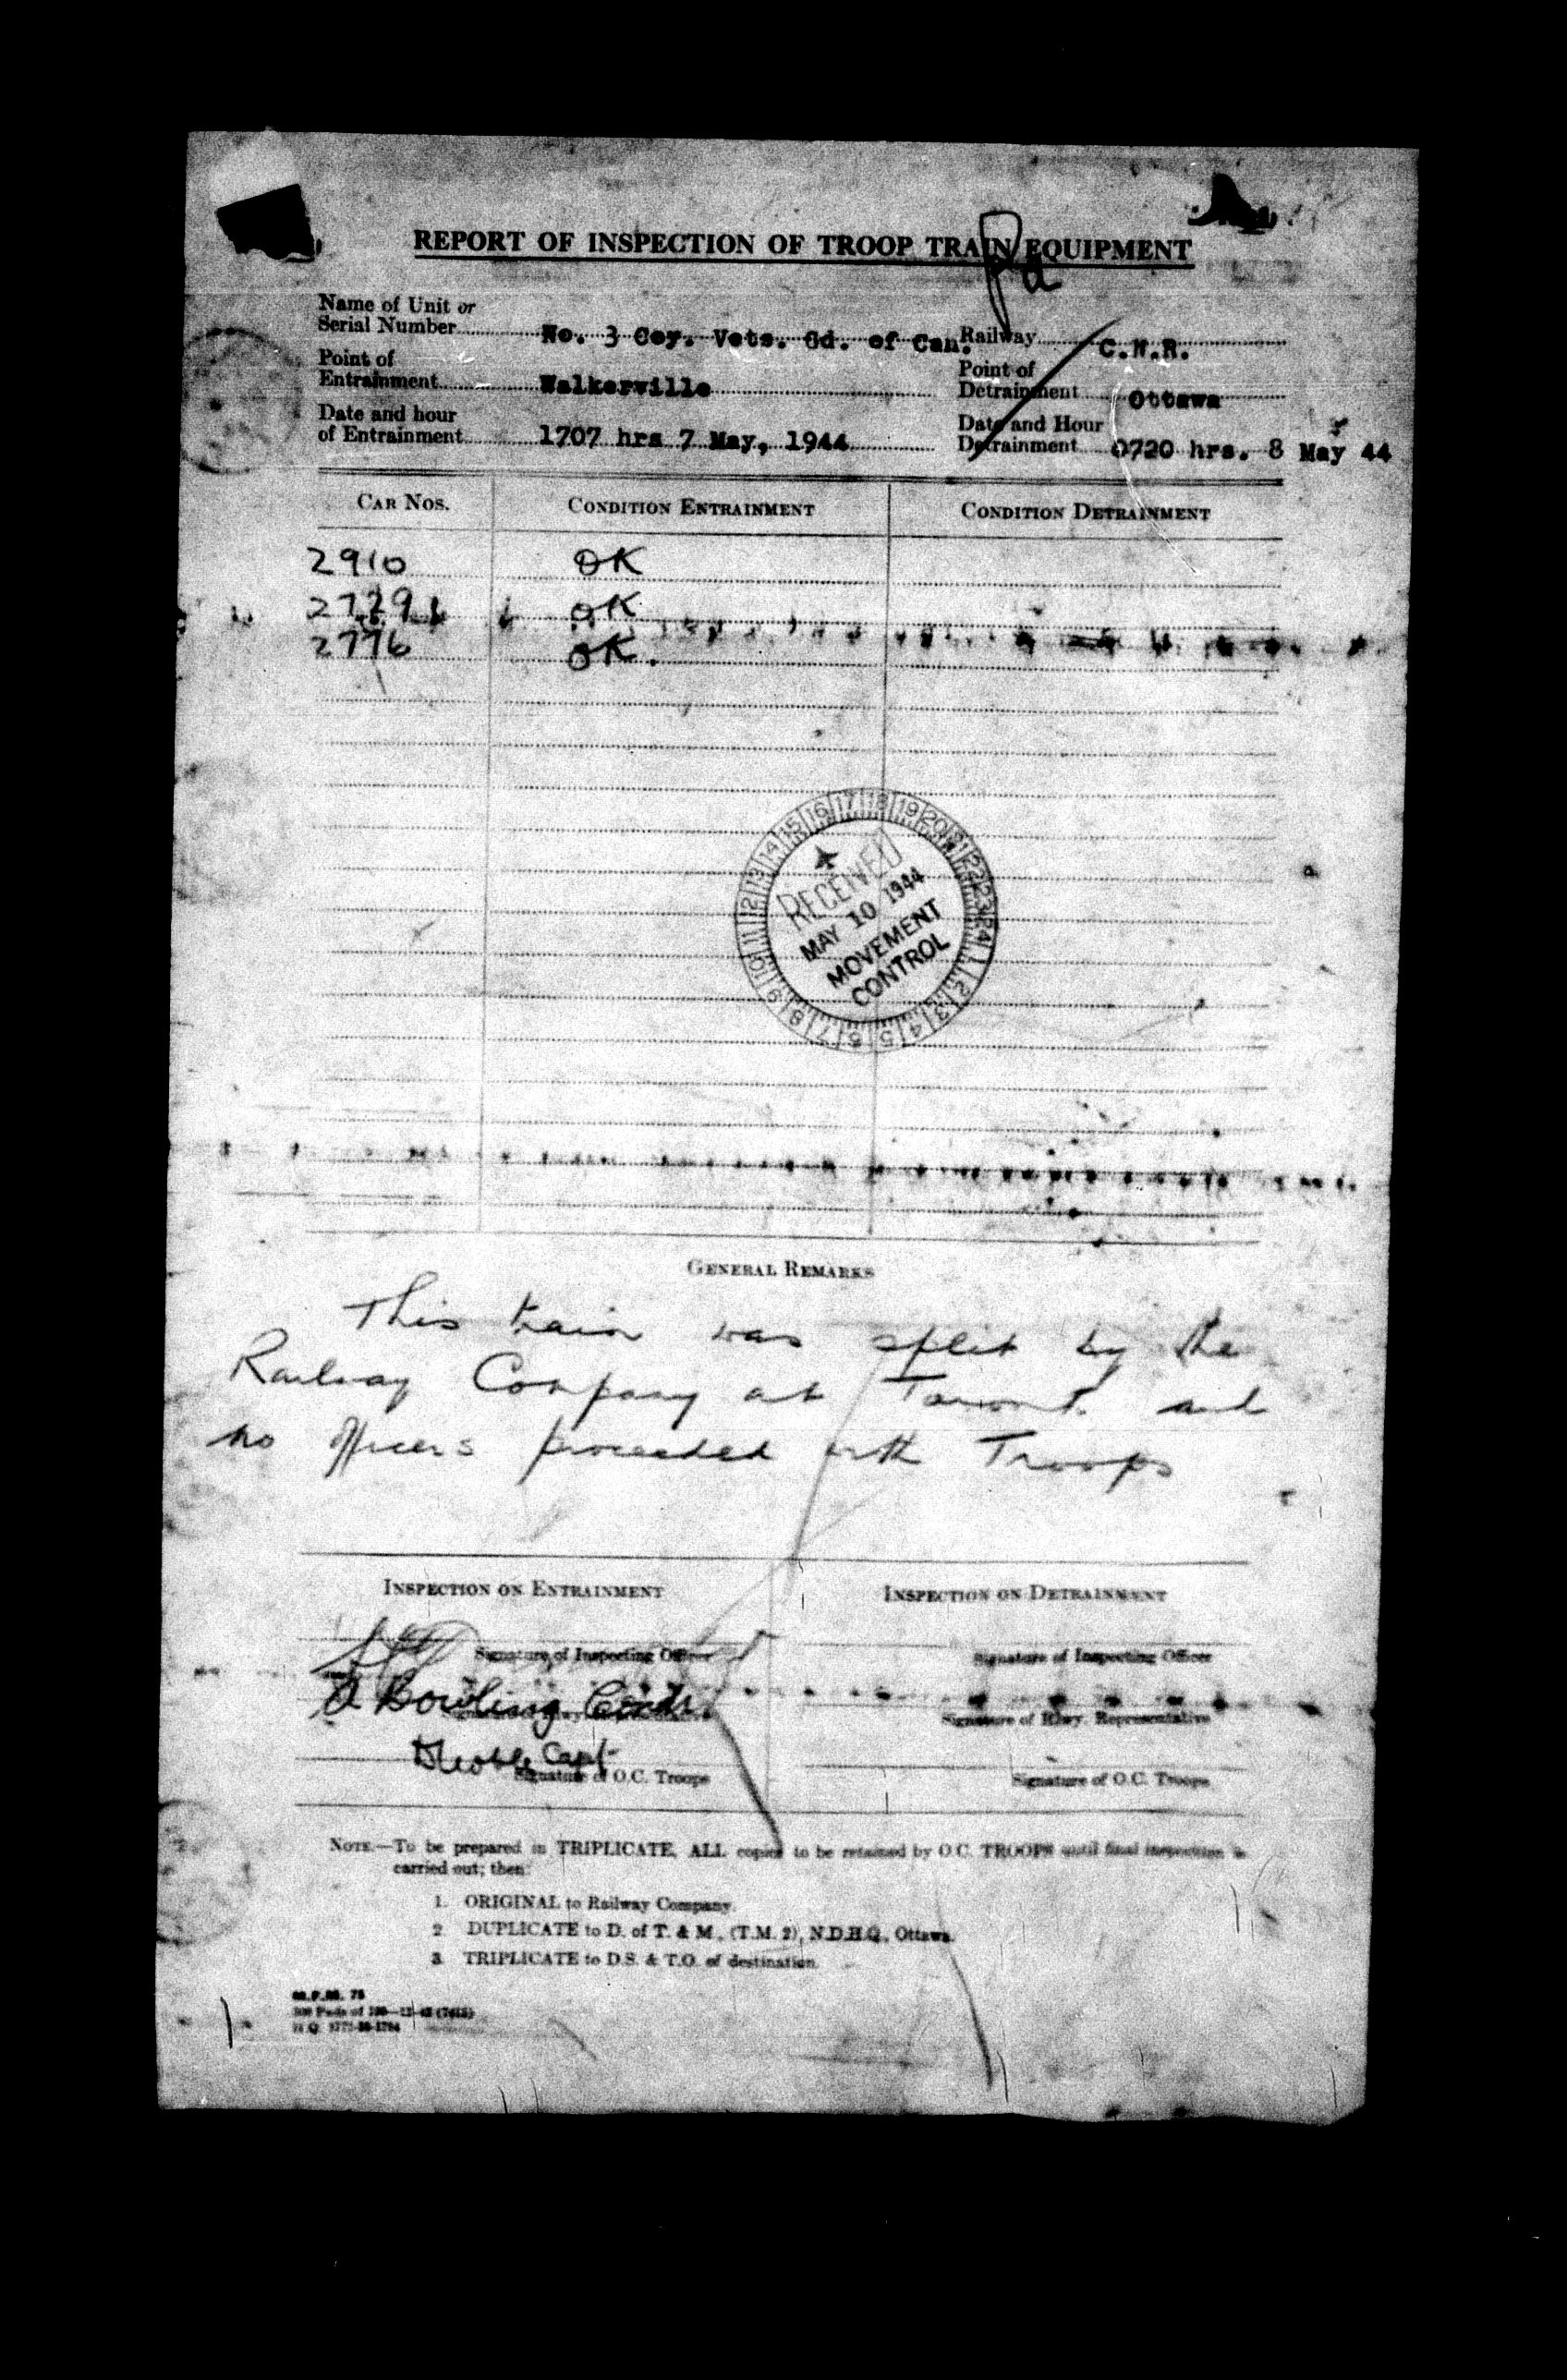 REPORT OF INSPECTION OF TROOP TRAIN EQUIPMENT
Name of Unit or
Serial Number No. 3 Coy. Vets. Gd. of Can. Railway C.N.R.
Point of Entrainment Walkerville Point of Detrainment Ottawa
Date and hour of Entrainment 1707 hrs 7 May, 1944 Date and Hour Detrainment 0720 hrs. 8 May 44
CAR NOS. CONDITION ENTRAINMENT CONDITION DETRAINMENT
2910 OK
2729 OK
2776 OK.
RECEIVED
MAY 10 1944
MOVEMENT
CONTROL
GENERAL REMARKS
This train was split by the
Railway Company at Toront. and
no officers proceeded with Troops
INSPECTION ON ENTRAINMENT INSPECTION ON DETRAINMENT
Signature of Inspecting Officer Signature of Inspecting Officer
Bowling
Signature of Rlwy. Representative Signature of Rlwy. Representative
Capt
Signature of O.C. Troops Signature of O.C. Troops
NOTE.—To be prepared in TRIPLICATE, ALL copies to be retained by O.C. TROOPS until final inspection is
carried out; then:
1. ORIGINAL to Railway Company.
2. DUPLICATE to D. of T. & M., (T.M. 2), N.D.H.Q., Ottawa.
3. TRIPLICATE to D.S. & T.O. of destination.